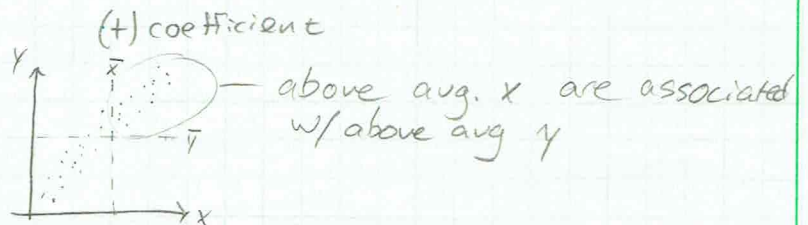 (+) coefficient
Y
x̄
above avg. x are associated
w/ above avg y
ȳ
x